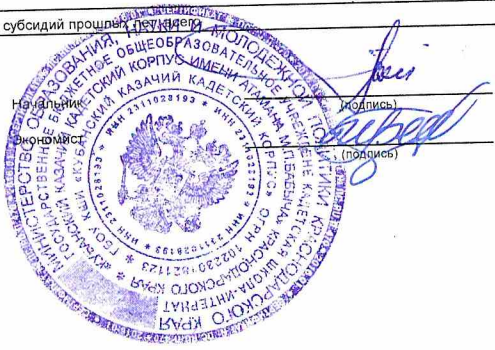 субсидий прошлых лет, всего
Начальник
(подпись)
Экономист
(подпись)
МИНИСТЕРСТВО ОБРАЗОВАНИЯ, НАУКИ И МОЛОДЕЖНОЙ ПОЛИТИКИ КРАСНОДАРСКОГО КРАЯ
ГОСУДАРСТВЕННОЕ БЮДЖЕТНОЕ ОБЩЕОБРАЗОВАТЕЛЬНОЕ УЧРЕЖДЕНИЕ КАДЕТСКАЯ ШКОЛА-ИНТЕРНАТ
«КУБАНСКИЙ КАЗАЧИЙ КАДЕТСКИЙ КОРПУС ИМЕНИ АТАМАНА М.П.БАБЫЧА» КРАСНОДАРСКОГО КРАЯ
ГБОУ КШИ «КУБАНСКИЙ КАЗАЧИЙ КАДЕТСКИЙ КОРПУС» ОГРН
* ИНН 2311028193 * ИНН 2311028193 * ИНН 2311028193